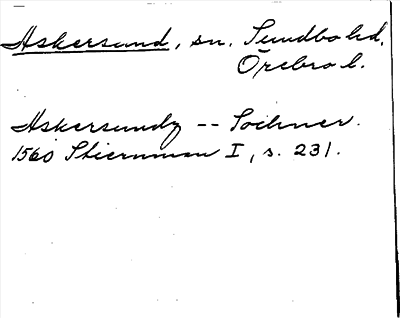 Askersund, sn. Sundbo hd.
Örebro l.
Askersundz -- Sochner.
1560 Stiernman I, s. 231.